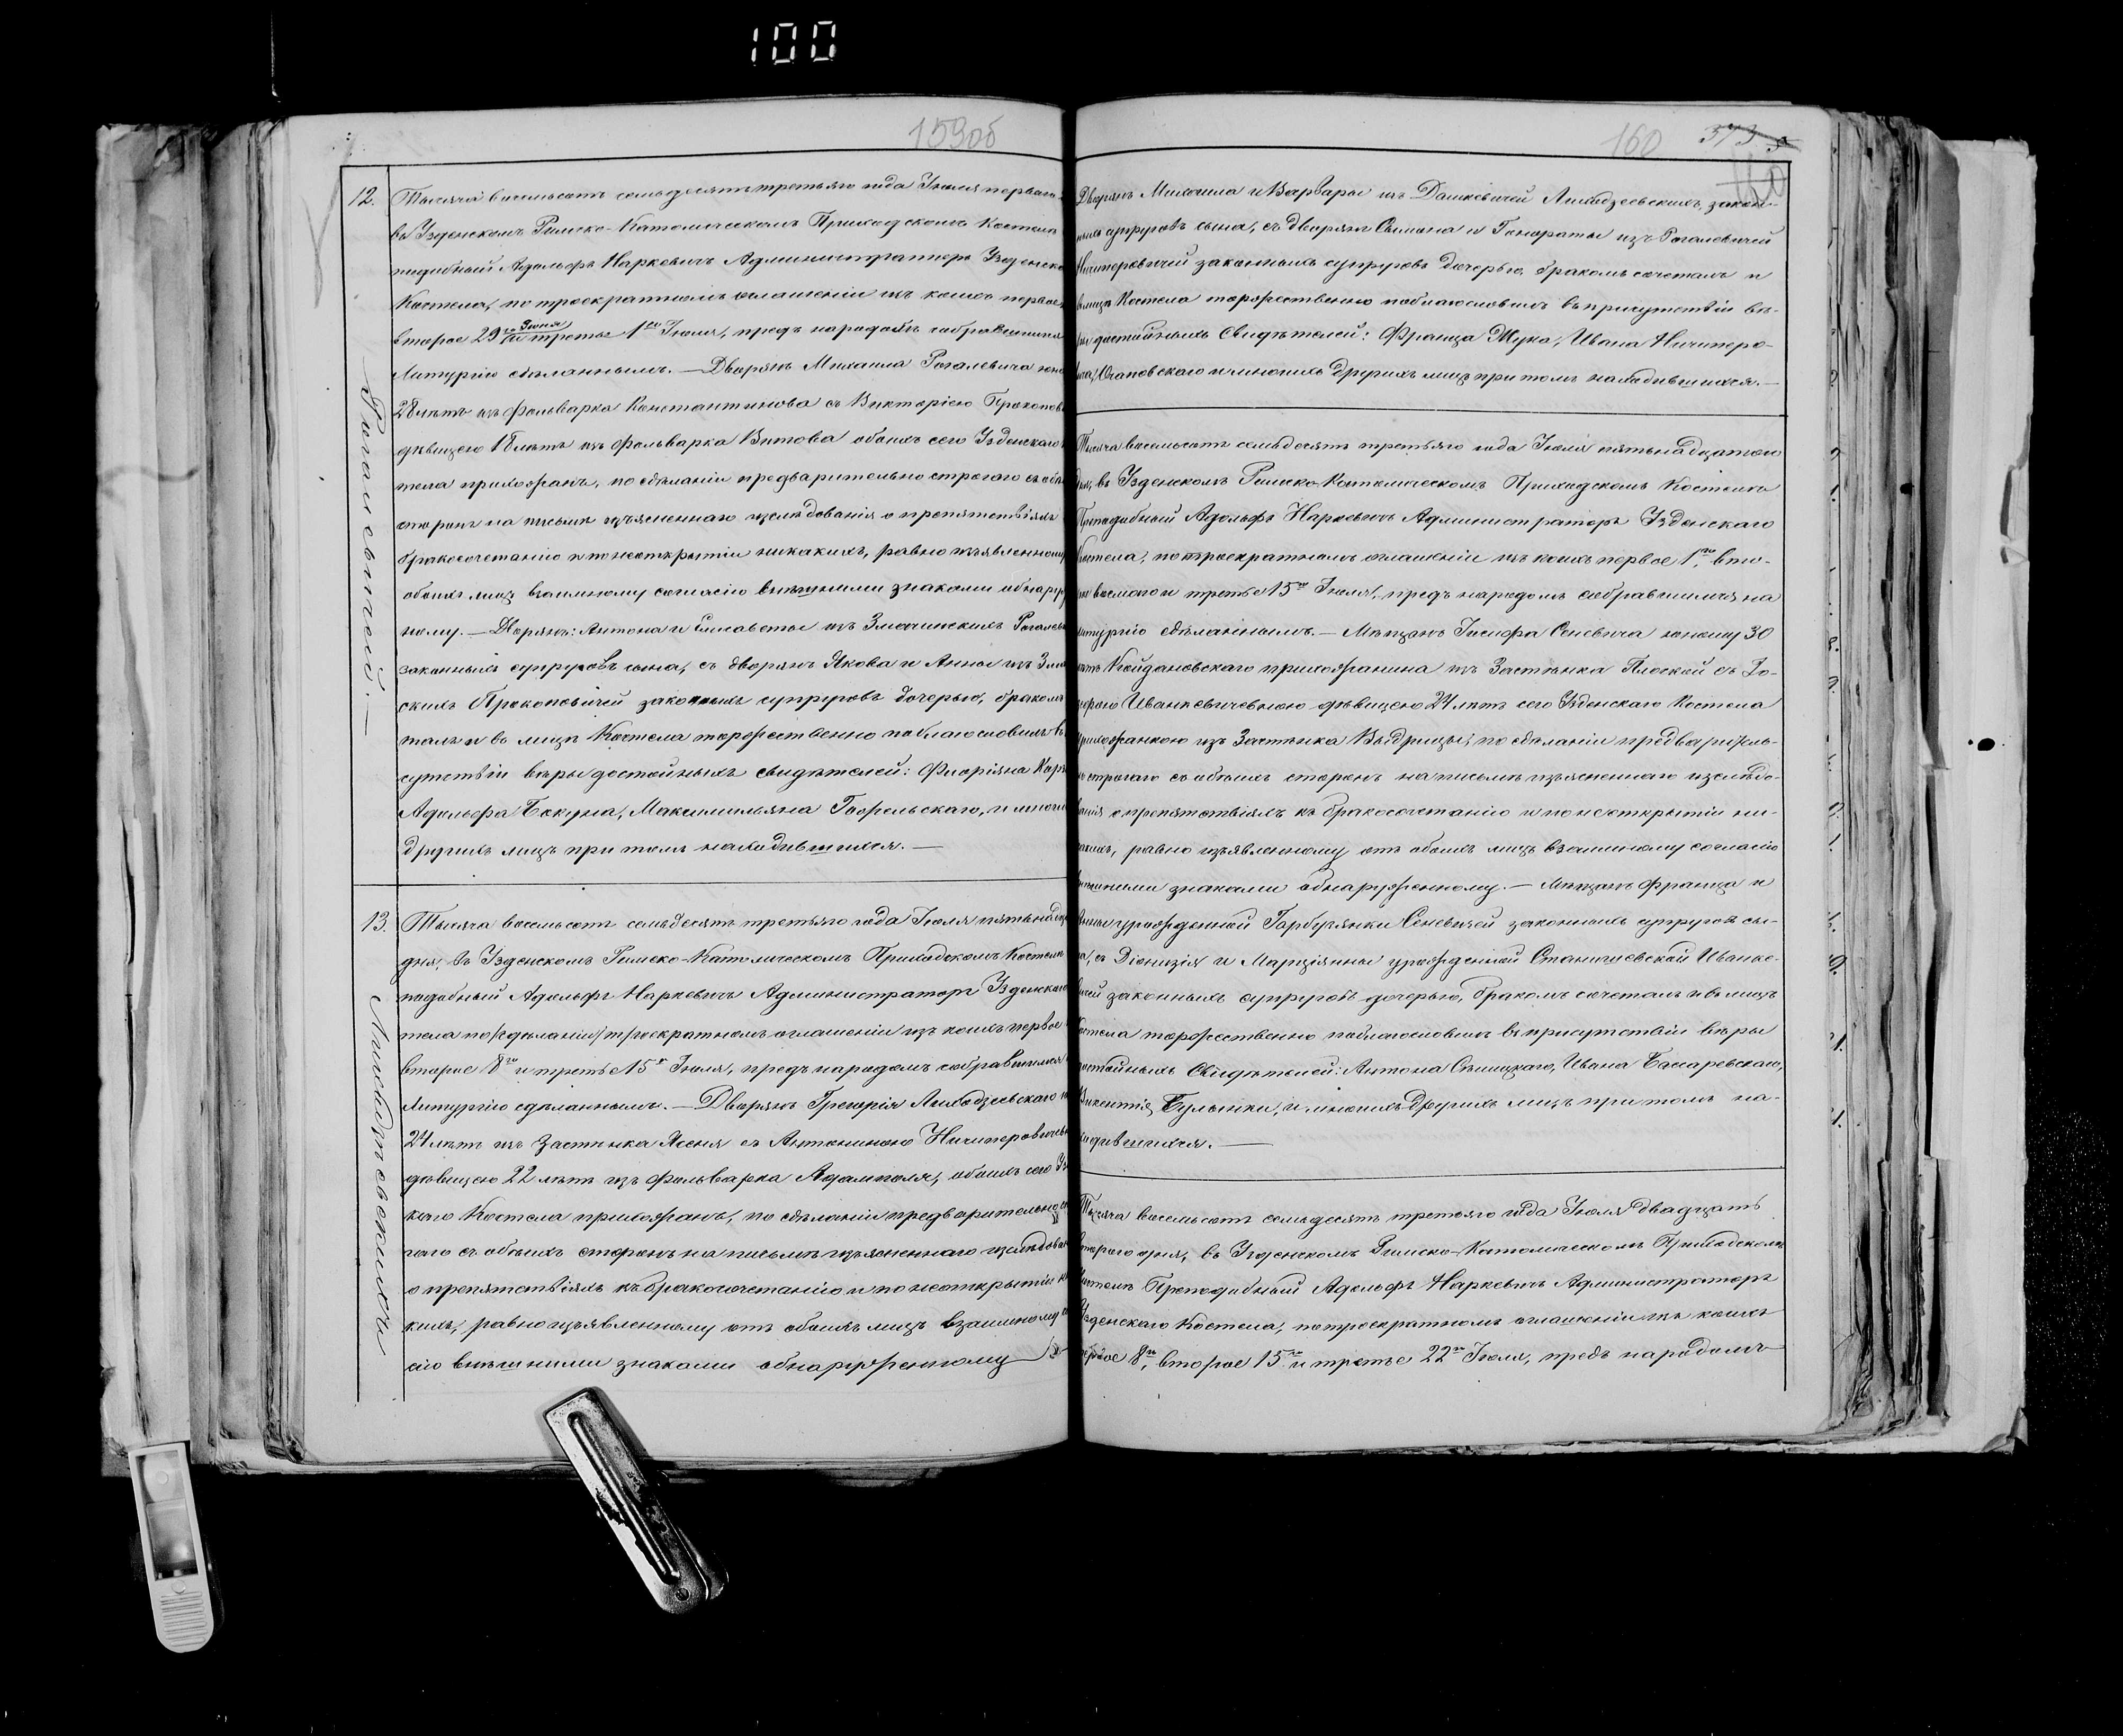 100
159об
12.
Тысяча восемьсотъ семьдесятъ третьяго года Іюля перваго
въ Узденскомъ Римско-Католическомъ Приходскомъ Костелѣ
подобный Адольфъ Наркевичъ Администраторъ Узденско
Костела, по троекратномъ оглашеніи изъ коихъ первое
второе 29го Іюня и третье 1го Іюля, предъ народомъ собравшимся
Литургію сдѣланнымъ. — Дворянъ Михаила Рогалевича юно
28 лѣтъ изъ фольварка Константинова съ Викторіею Прокопов
дѣвицею 18 лѣтъ изъ фольварка Витова обоихъ сего Узденскаго
тела прихожанъ, по сдѣланіи предварительно строгаго съ обѣ
сторонъ на письмѣ изъясненнаго изслѣдованія о препятствіяхъ
бракосочетанію и по неоткрытіи никакихъ, равно изъявленному
обоихъ лицъ взаимному согласію внѣшними знаками обнаруж
ному. — Дворянъ: Антона и Елисаветы изъ Рогалев
законныхъ супруговъ сына, съ дворянъ Якова и Анны изъ
скихъ Прокоповичей законныхъ супруговъ дочерью, бракомъ
талъ и въ лицѣ Костела торжественно поблагословилъ въ
сутствіи вѣры достойныхъ свидѣтелей: Флоріяна
Адольфа Бокуна, Максимильяна и многи
другихъ лицъ при томъ находившихся. —
Рогалевичей. —
13.
Тысяча восемьсотъ семьдесятъ третьяго года Іюля пятьнадца
дня, въ Узденскомъ Римско-Католическомъ Приходскомъ Костелѣ
подобный Адольфъ Наркевичъ Администраторъ Узденскаго
тела по сдѣланіи троекратномъ оглашеніи изъ коихъ первое
второе 8го и третье 15го Іюля, предъ народомъ собравшимся
Литургію сдѣланнымъ. — Дворянъ Грегорія Лиходзѣевскаго
24 лѣтъ изъ Застѣнка Ясеня съ Антониною Ничипоровичев
дѣвицею 22 лѣтъ изъ фольварка Адамполя, обоихъ сего Уз
каго Костела прихожанъ, по сдѣланіи предварительно
гаго съ обѣихъ сторонъ на письмѣ изъясненнаго изслѣдован
о препятствіяхъ къ бракосочетанію и по неоткрытіи
кихъ, равно изъявленному отъ обоихъ лицъ взаимному
сію внѣшними знаками обнаруженному
Лиходзѣевскихъ
160
373
Дворянъ Михаила и Варвары изъ Дашкевичей Лиходзѣевскихъ, закон-
ныхъ супруговъ сына, съ дворянъ Симона и Гонораты изъ Рогалевичей
Ничипоровичей законныхъ супруговъ дочерью, бракомъ сочеталъ и
въ лицѣ Костела торжественно поблагословилъ въ присутствіи вѣ-
ры достойныхъ Свидѣтелей: Франца Жука, Ивана Ничипоро-
вича, и многихъ другихъ лицъ при томъ находившихся. —
Тысяча восемьсотъ семьдесятъ третьяго года Іюля пятьнадцатаго
дня, въ Узденскомъ Римско-Католическомъ Приходскомъ Костелѣ
Преподобный Адольфъ Наркевичъ Администраторъ Узденскаго
Костела, по троекратномъ оглашеніи изъ коихъ первое 1го, вто-
рое восьмого и третье 15го Іюля, предъ народомъ собравшимся на
литургію сдѣланнымъ. — Мѣщанъ Іосифа Сеневича юношу 30
лѣтъ Койдановскаго прихожанина изъ Застѣнка Плоской съ До-
ротою Иванкевичевною дѣвицею 24 лѣтъ сего Узденскаго Костела
прихожанкою изъ Застѣнка Выдрицы, по сдѣланіи предваритель-
но строгаго съ обѣихъ сторонъ на письмѣ изъясненнаго изслѣдо-
ванія о препятствіяхъ къ бракосочетанію и по неоткрытіи ни-
какихъ, равно изъявленному отъ обоихъ лицъ взаимному согласію
внѣшними знаками обнаруженному. — Мѣщанъ Франца и
урожденной Гарбузянки Сеневичей законныхъ супруговъ сы-
на, съ Діонизія и Марціянны урожденной Станишевской Иванке-
вичей законныхъ супруговъ дочерью, бракомъ сочеталъ и въ лицѣ
Костела торжественно поблагословилъ въ присутствіи вѣры
достойныхъ Свидѣтелей: Антона Ивана
Викентія Булынки, и многихъ другихъ лицъ при томъ на-
ходившихся. —
Тысяча восемьсотъ семьдесятъ третьяго года Іюля двадцать
втораго дня, въ Узденскомъ Римско-Католическомъ Приходскомъ
Костелѣ Преподобный Адольфъ Наркевичъ Администраторъ
Узденскаго Костела, по троекратномъ оглашеніи изъ коихъ
первое 8го, второе 15го и третье 22го Іюля, предъ народомъ